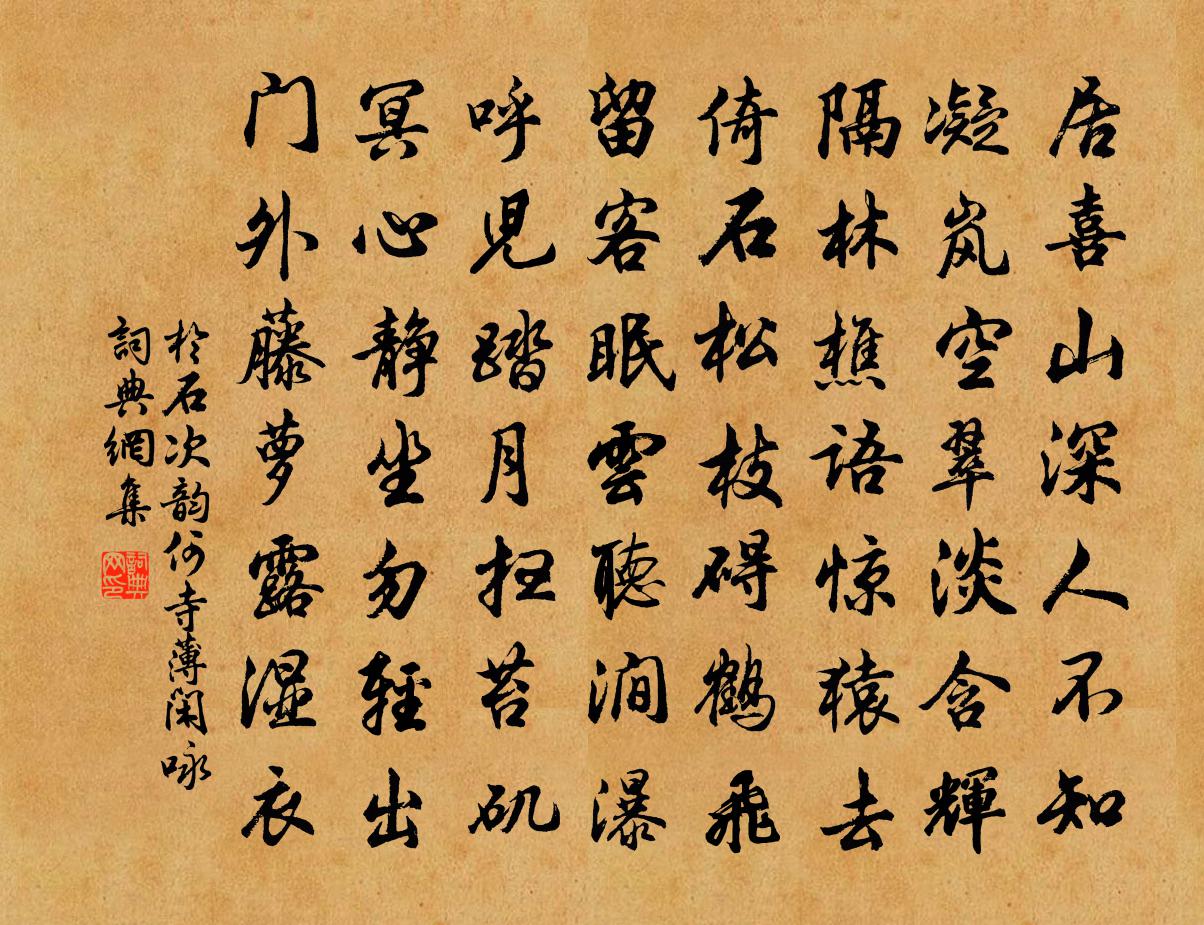 居喜山深人不知
凝岚空翠淡含輝
隔林樵語惊猿去
倚石松枝碍鶴飛
留客眠雲聽澗瀑
呼児踏月扫苔矶
冥心静坐勿輕出
门外藤萝露湿衣
於石次韵何寺薄闲咏
詞典網集